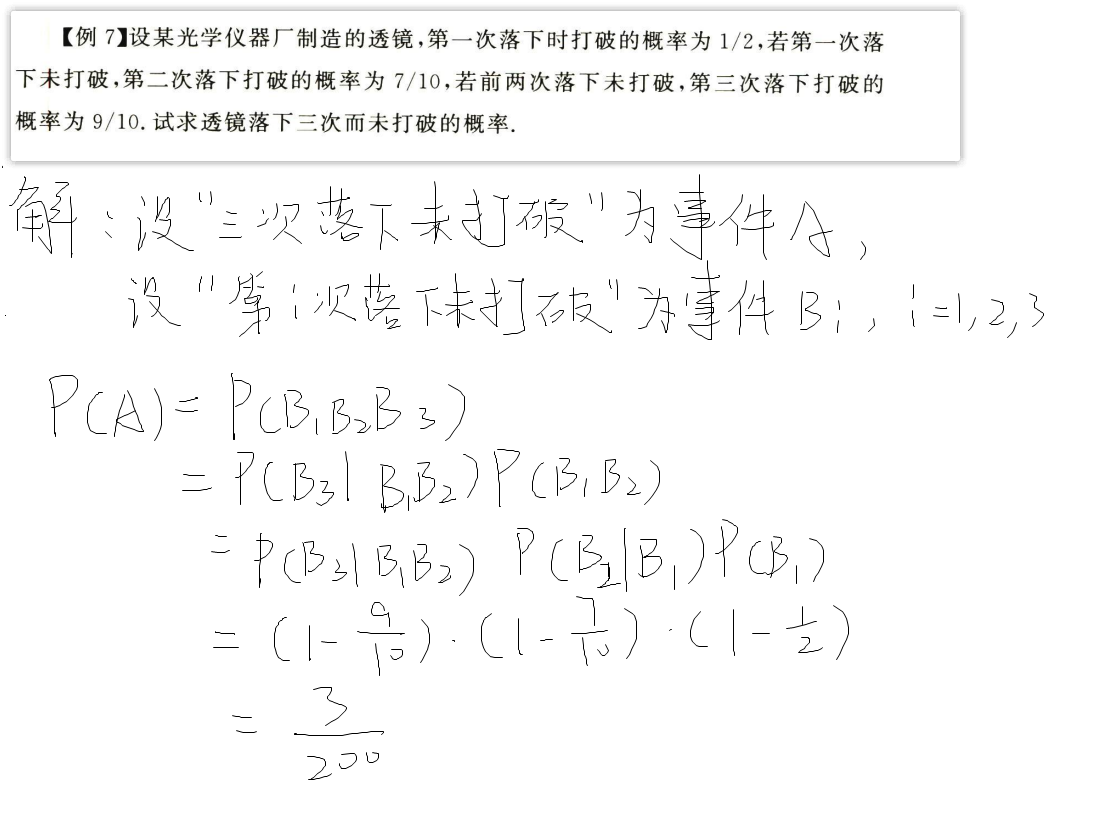 【例 7】设某光学仪器厂制造的透镜,第一次落下时打破的概率为 1/2,若第一次落
下未打破,第二次落下打破的概率为 7/10,若前两次落下未打破,第三次落下打破的
概率为 9/10. 试求透镜落下三次而未打破的概率.
解:设"三次落下未打破"为事件A,
设"第i次落下未打破"为事件Bi, i=1,2,3
P(A)= P(B₁B₂B₃)
= P(B₃|B₁B₂)P(B₁B₂)
= P(B₃|B₁B₂) P(B₂|B₁)P(B₁)
= (1-9/10)·(1-7/10)·(1-1/2)
= 3/200